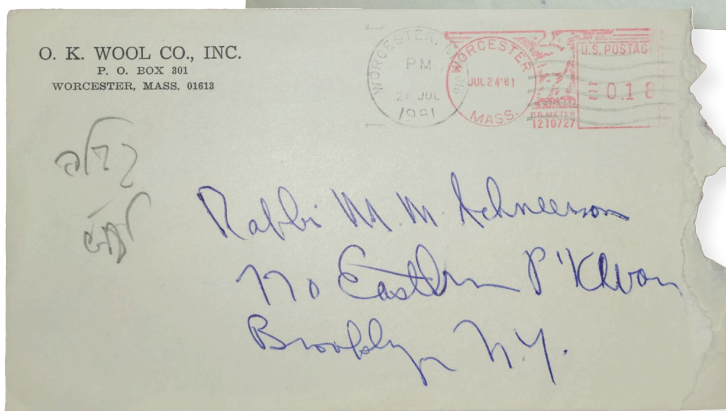 O. K. WOOL CO., INC.
P. O. BOX 301
WORCESTER, MASS. 01613
WORCESTER,
PM
JUL
1981
WORCESTER
JUL 24 '81
MASS.
U.S. POSTAG
0.18
P.B. METER
1210727
Rabbi M. M. Schneerson
770 Eastern P'kway
Brooklyn N.Y.